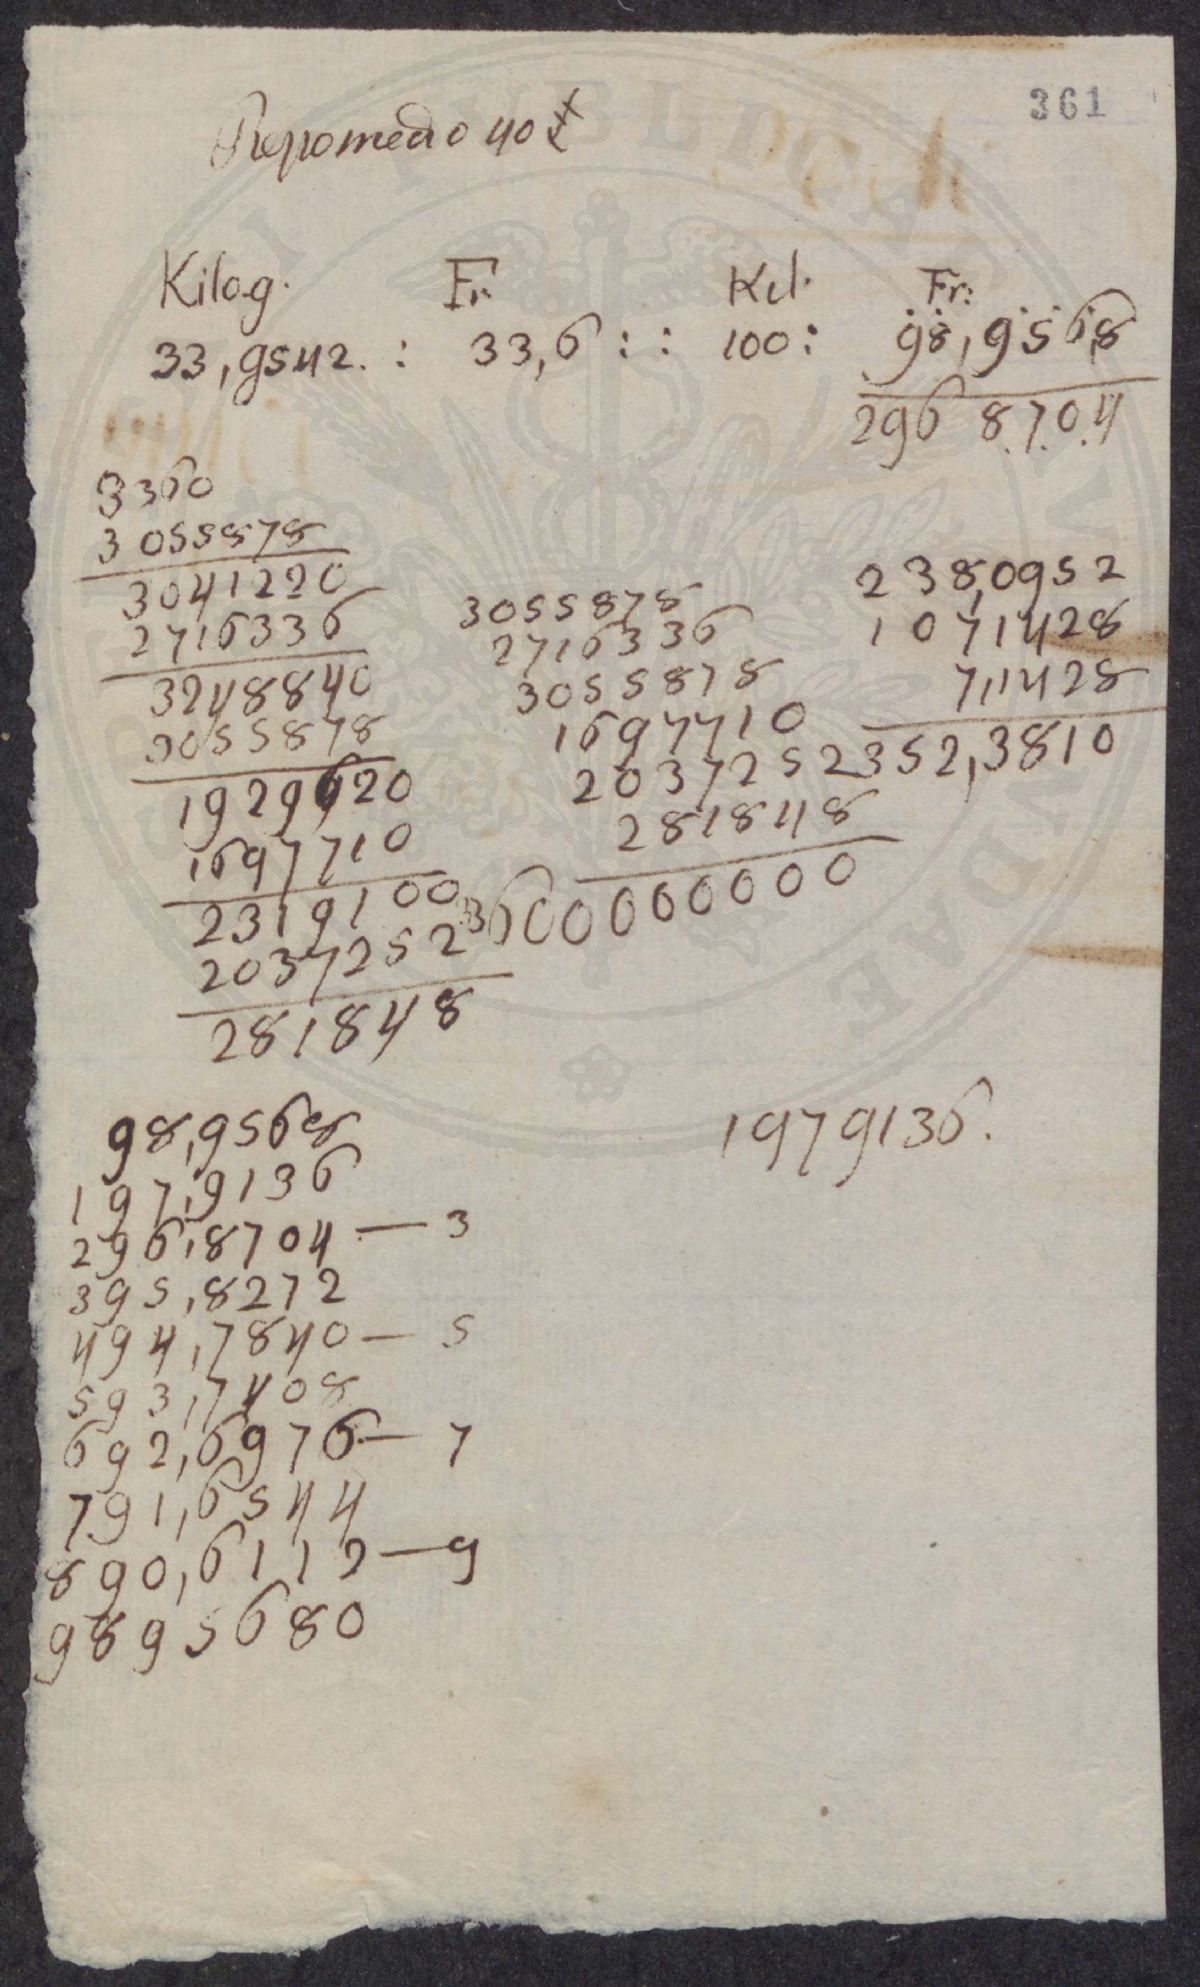 361
Propomedio 40 ℔
Kilog. Fr. Kil. Fr:
33,9542. : 33,6 : : 100 : 98,9568
296 8.7.0.4
3360
3055878
3041220
2716336
3248840
3055878
1929620
1697710
2319100
2037252
281848
3055878
2716336
3055878
1697710
2037252
281848
3600000000
238,0952
1071428
7,1428
352,3810
98,9568
197,9136
296,8704 — 3
395,8272
494,7840 — 5
593,7408
692,6976 — 7
791,6544
890,6112 — 9
9895680
1979136.